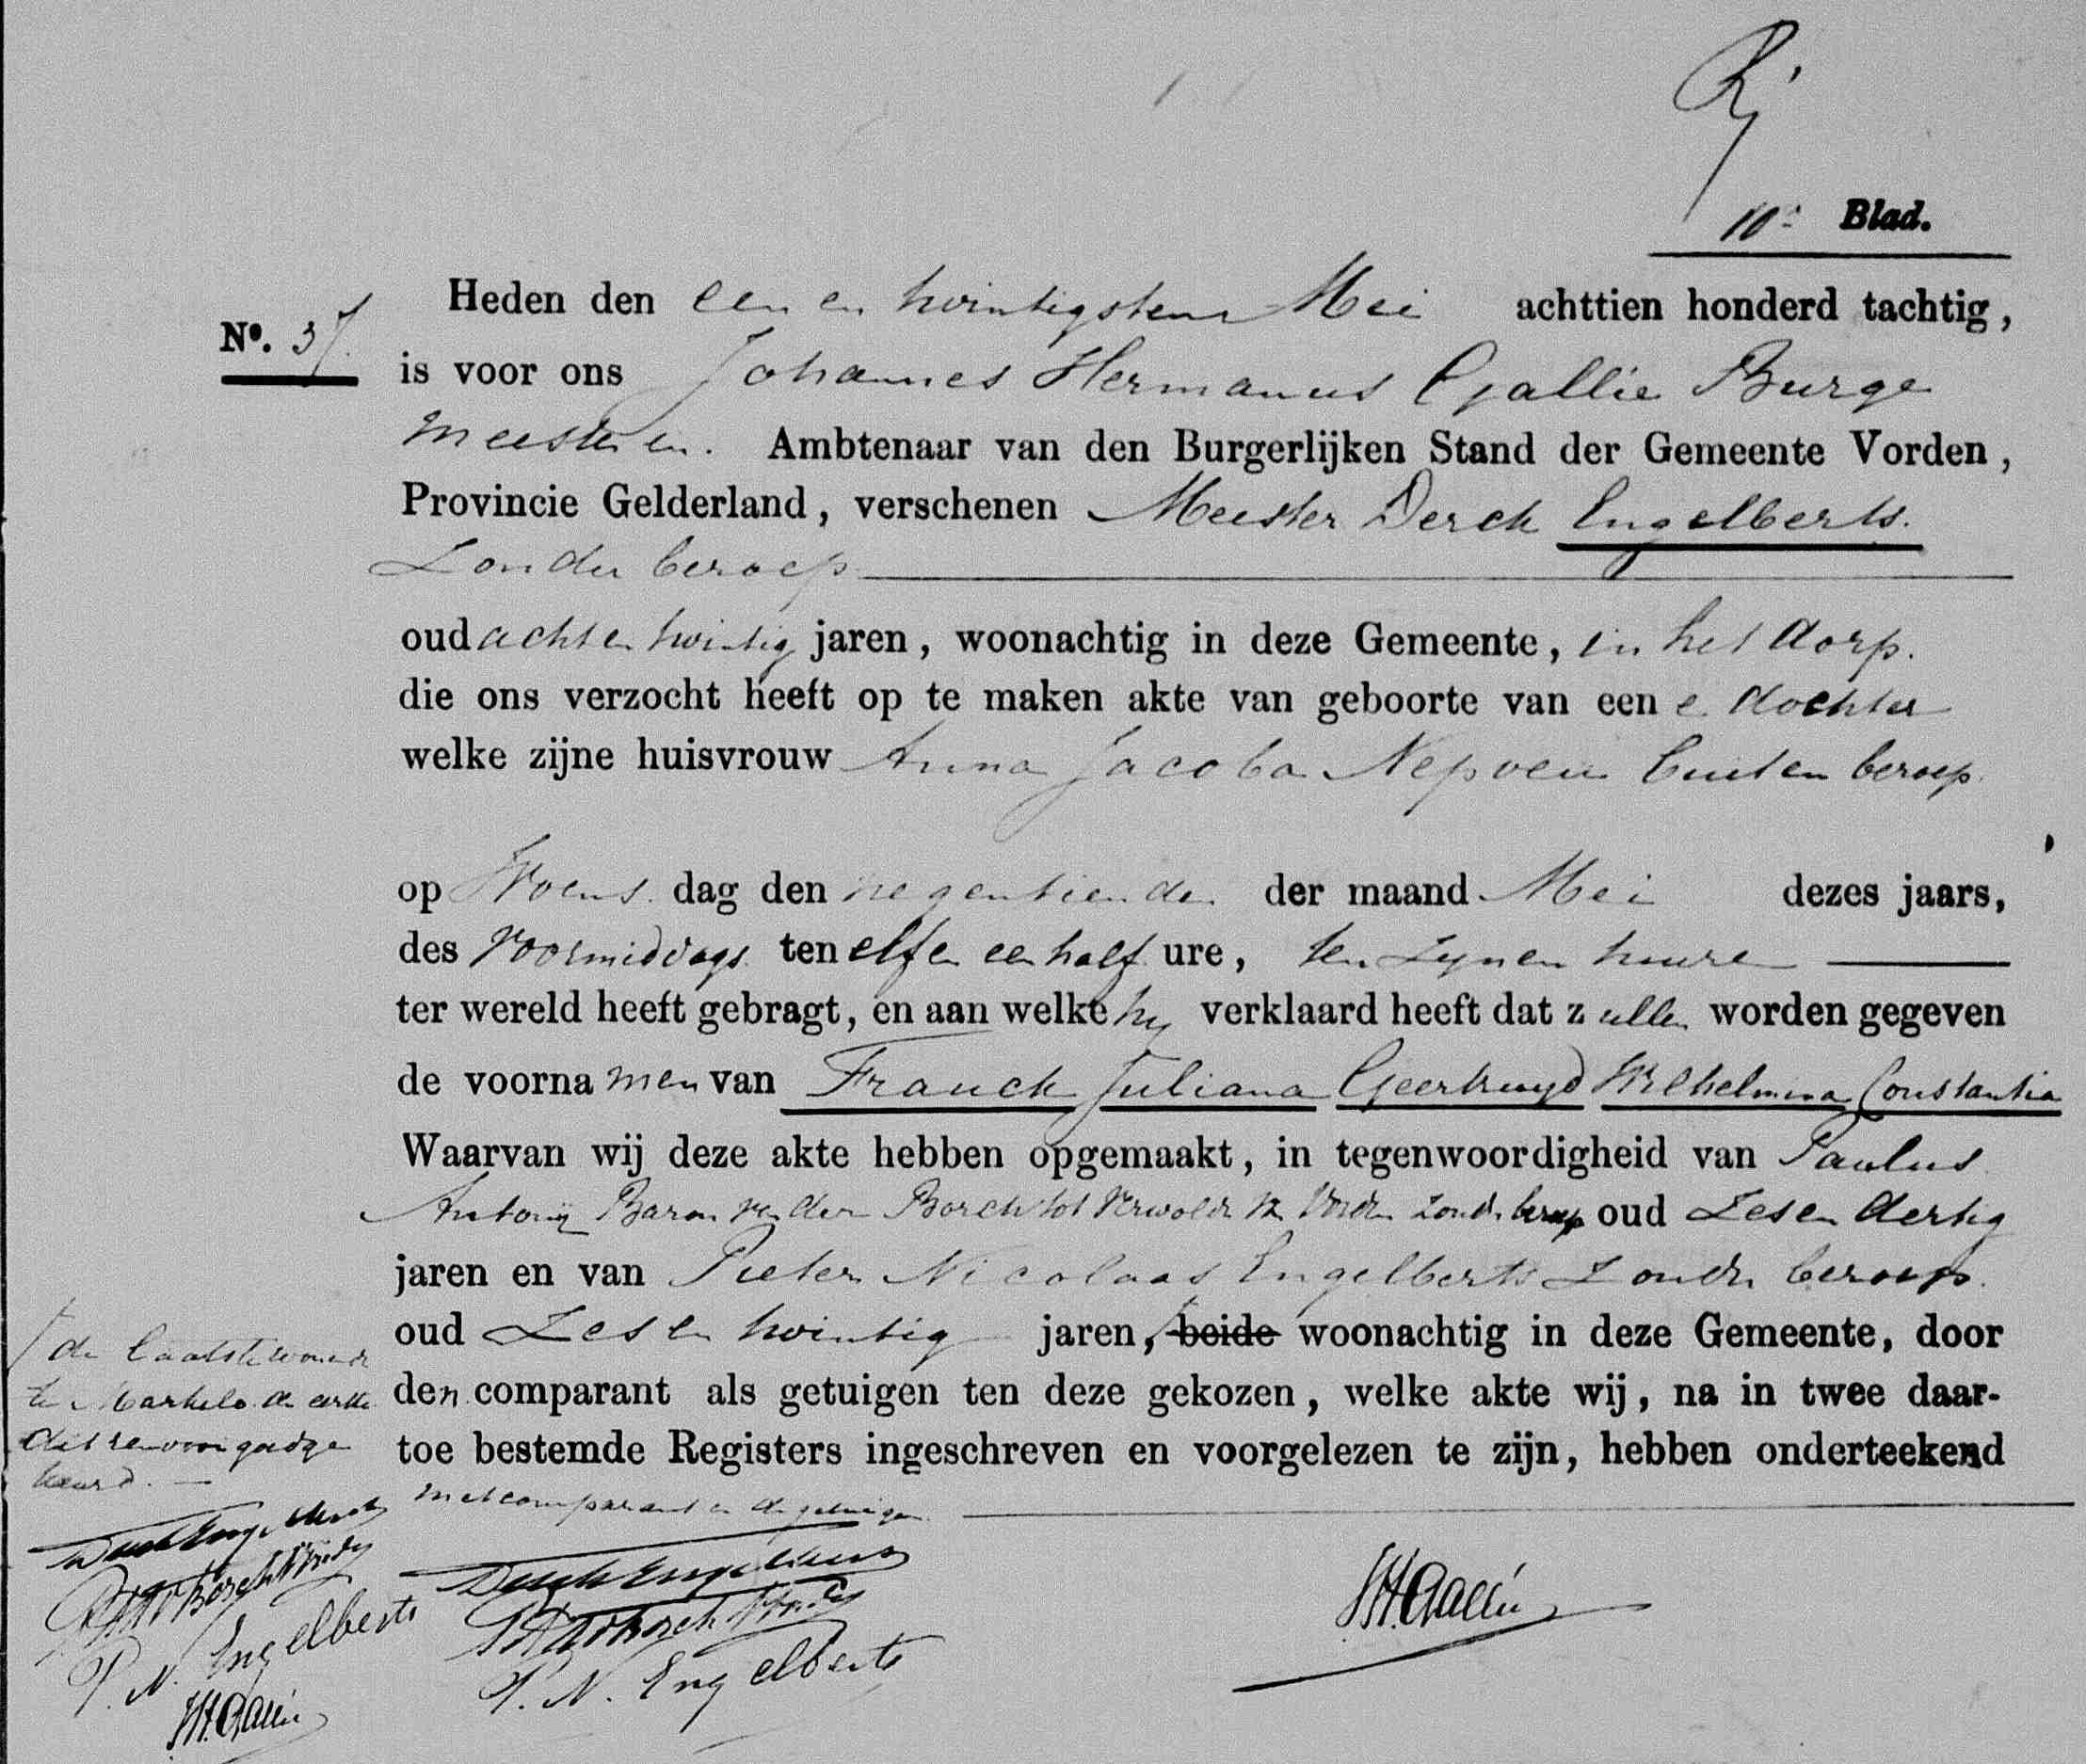 10e Blad.
Heden den een en twintigsten Mei achttien honderd tachtig,
No. 37.
is voor ons Johannes Hermanus Gallée Burge
meester en. Ambtenaar van den Burgerlijken Stand der Gemeente Vorden,
Provincie Gelderland, verschenen Meester Derck Engelberts.
Zonder beroep
oud acht en twintig jaren, woonachtig in deze Gemeente, in het dorp.
die ons verzocht heeft op te maken akte van geboorte van een e dochter
welke zijne huisvrouw Anna Jacoba Nepveu buiten beroep.
op Woens dag den negentienden der maand Mei dezes jaars,
des Voormiddags ten elf en een half ure, ten zynen huize
ter wereld heeft gebragt, en aan welke hy verklaard heeft dat z ullen worden gegeven
de voorna men van Franck Juliana Geertruyd Wilhelmina Constantia
Waarvan wij deze akte hebben opgemaakt, in tegenwoordigheid van Paulus
Antonij Baron van der Borch tot Verwolde van Vorden zonder beroep oud Zes en dertig
jaren en van Pieter Nicolaas Engelberts Zonder beroep.
oud Zes en twintig jaren, beide woonachtig in deze Gemeente, door
den comparant als getuigen ten deze gekozen, welke akte wij, na in twee daar-
toe bestemde Registers ingeschreven en voorgelezen te zijn, hebben onderteekend
met comparant en de getuigen.
de laatste wonende
te Markelo de eerste
alhier goedge
keurd.
Derck Engelberts
P. N. Engelberts
JHGallée
Derck Engelberts
P. N. Engelberts
JHGallée